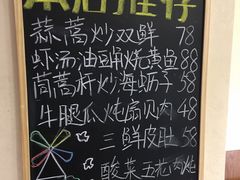 本店推荐
蒜蒿炒双鲜 78
虾汤油豆角烧黄鱼 88
茼蒿杆炒海蛎子 58
牛腿瓜炖扇贝肉 48
三鲜皮肚 58
酸菜五花肉炖